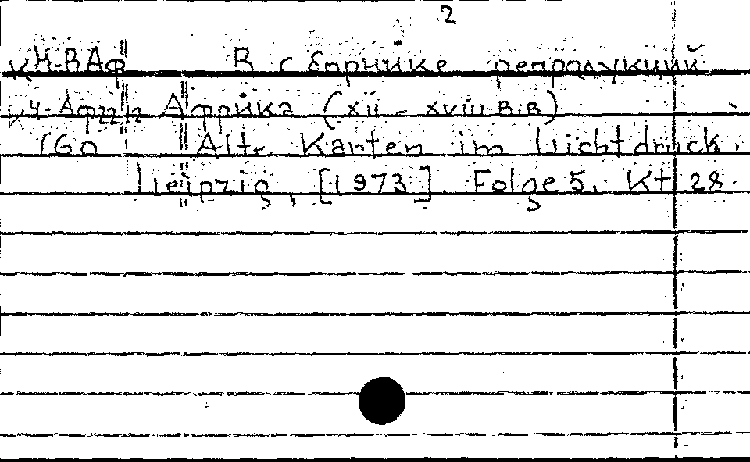 2
К Ч-ВАф В сборнике репродукций
К Ч-Аф22/2 Африка (XII - XVIII в.в)
IGo Alte Karten im Lichtdruck.
Leipzig, [1973]. Folge 5. Kt 28.